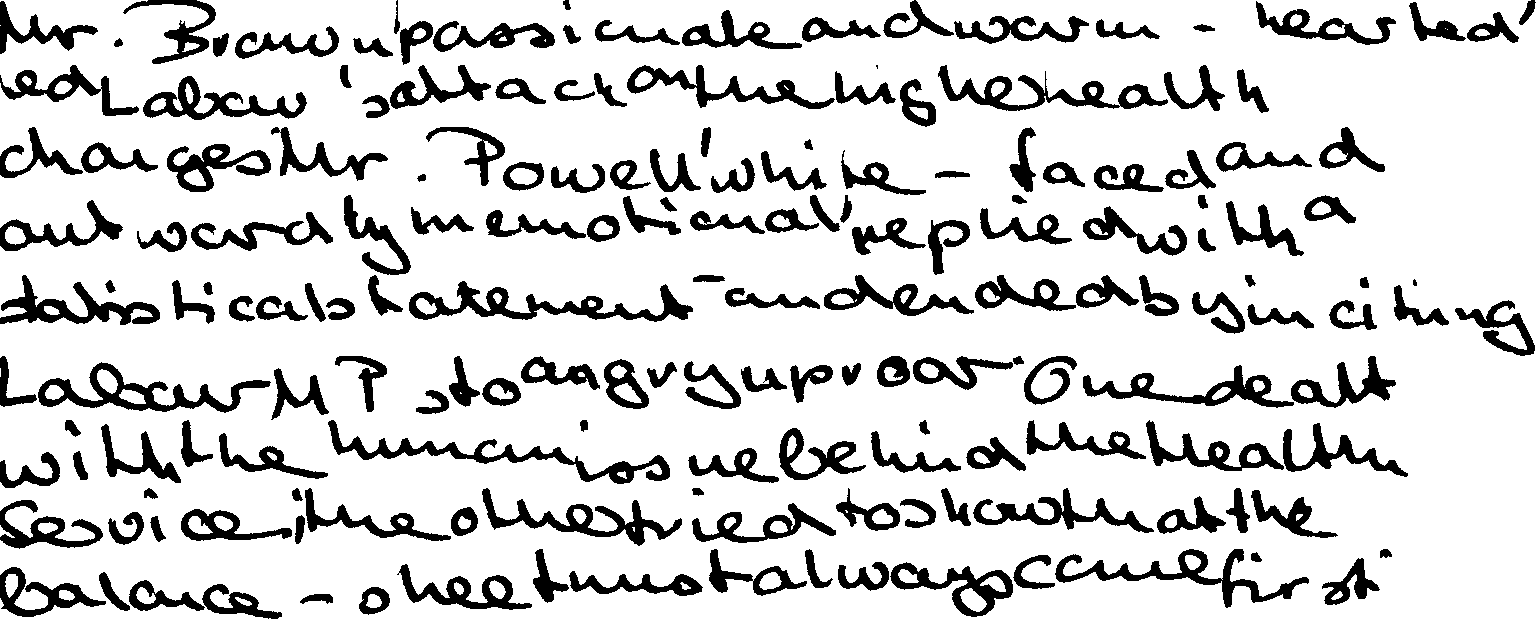 Mr. Brown, passionate and warm-hearted,
led Labour's attack on the higher health
charges. Mr. Powell, white-faced and
outwardly unemotional, replied with a
statistical statement - and ended by inciting
Labour MPs to angry uproar. One dealt
with the human issue behind the Health
Service; the other tried to show that the
balance-sheet must always come first.